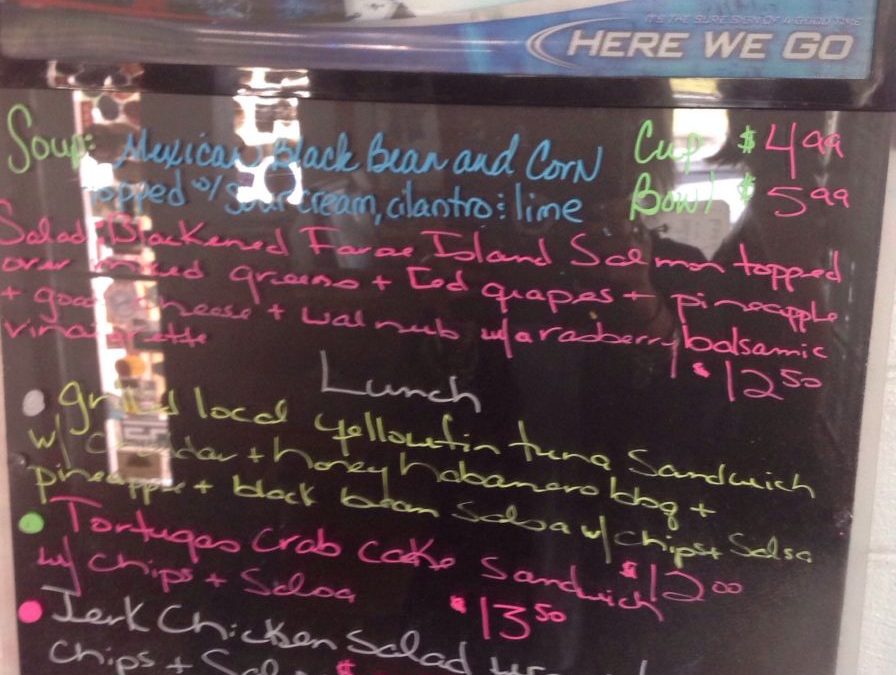 IT'S THE SURE SIGN OF A GOOD TIME
HERE WE GO
Soup: Mexican Black Bean and Corn Cup $4.99
topped w/ sour cream, cilantro & lime Bowl $5.99
Salad: Blackened Faroe Island Salmon topped
over mixed greens + red grapes + pineapple
+ goat cheese + walnuts w/ a rasberry balsamic
vinaigrette $12.50
Lunch
grilled local yellowfin tuna Sandwich
w/ cheddar + honey habanero bbq +
pineapple + black bean Salsa w/ chips + Salsa
$12.00
Tortugas Crab cake Sandwich
w/ chips + Salsa $13.50
Jerk Chicken Salad
chips + Salsa $